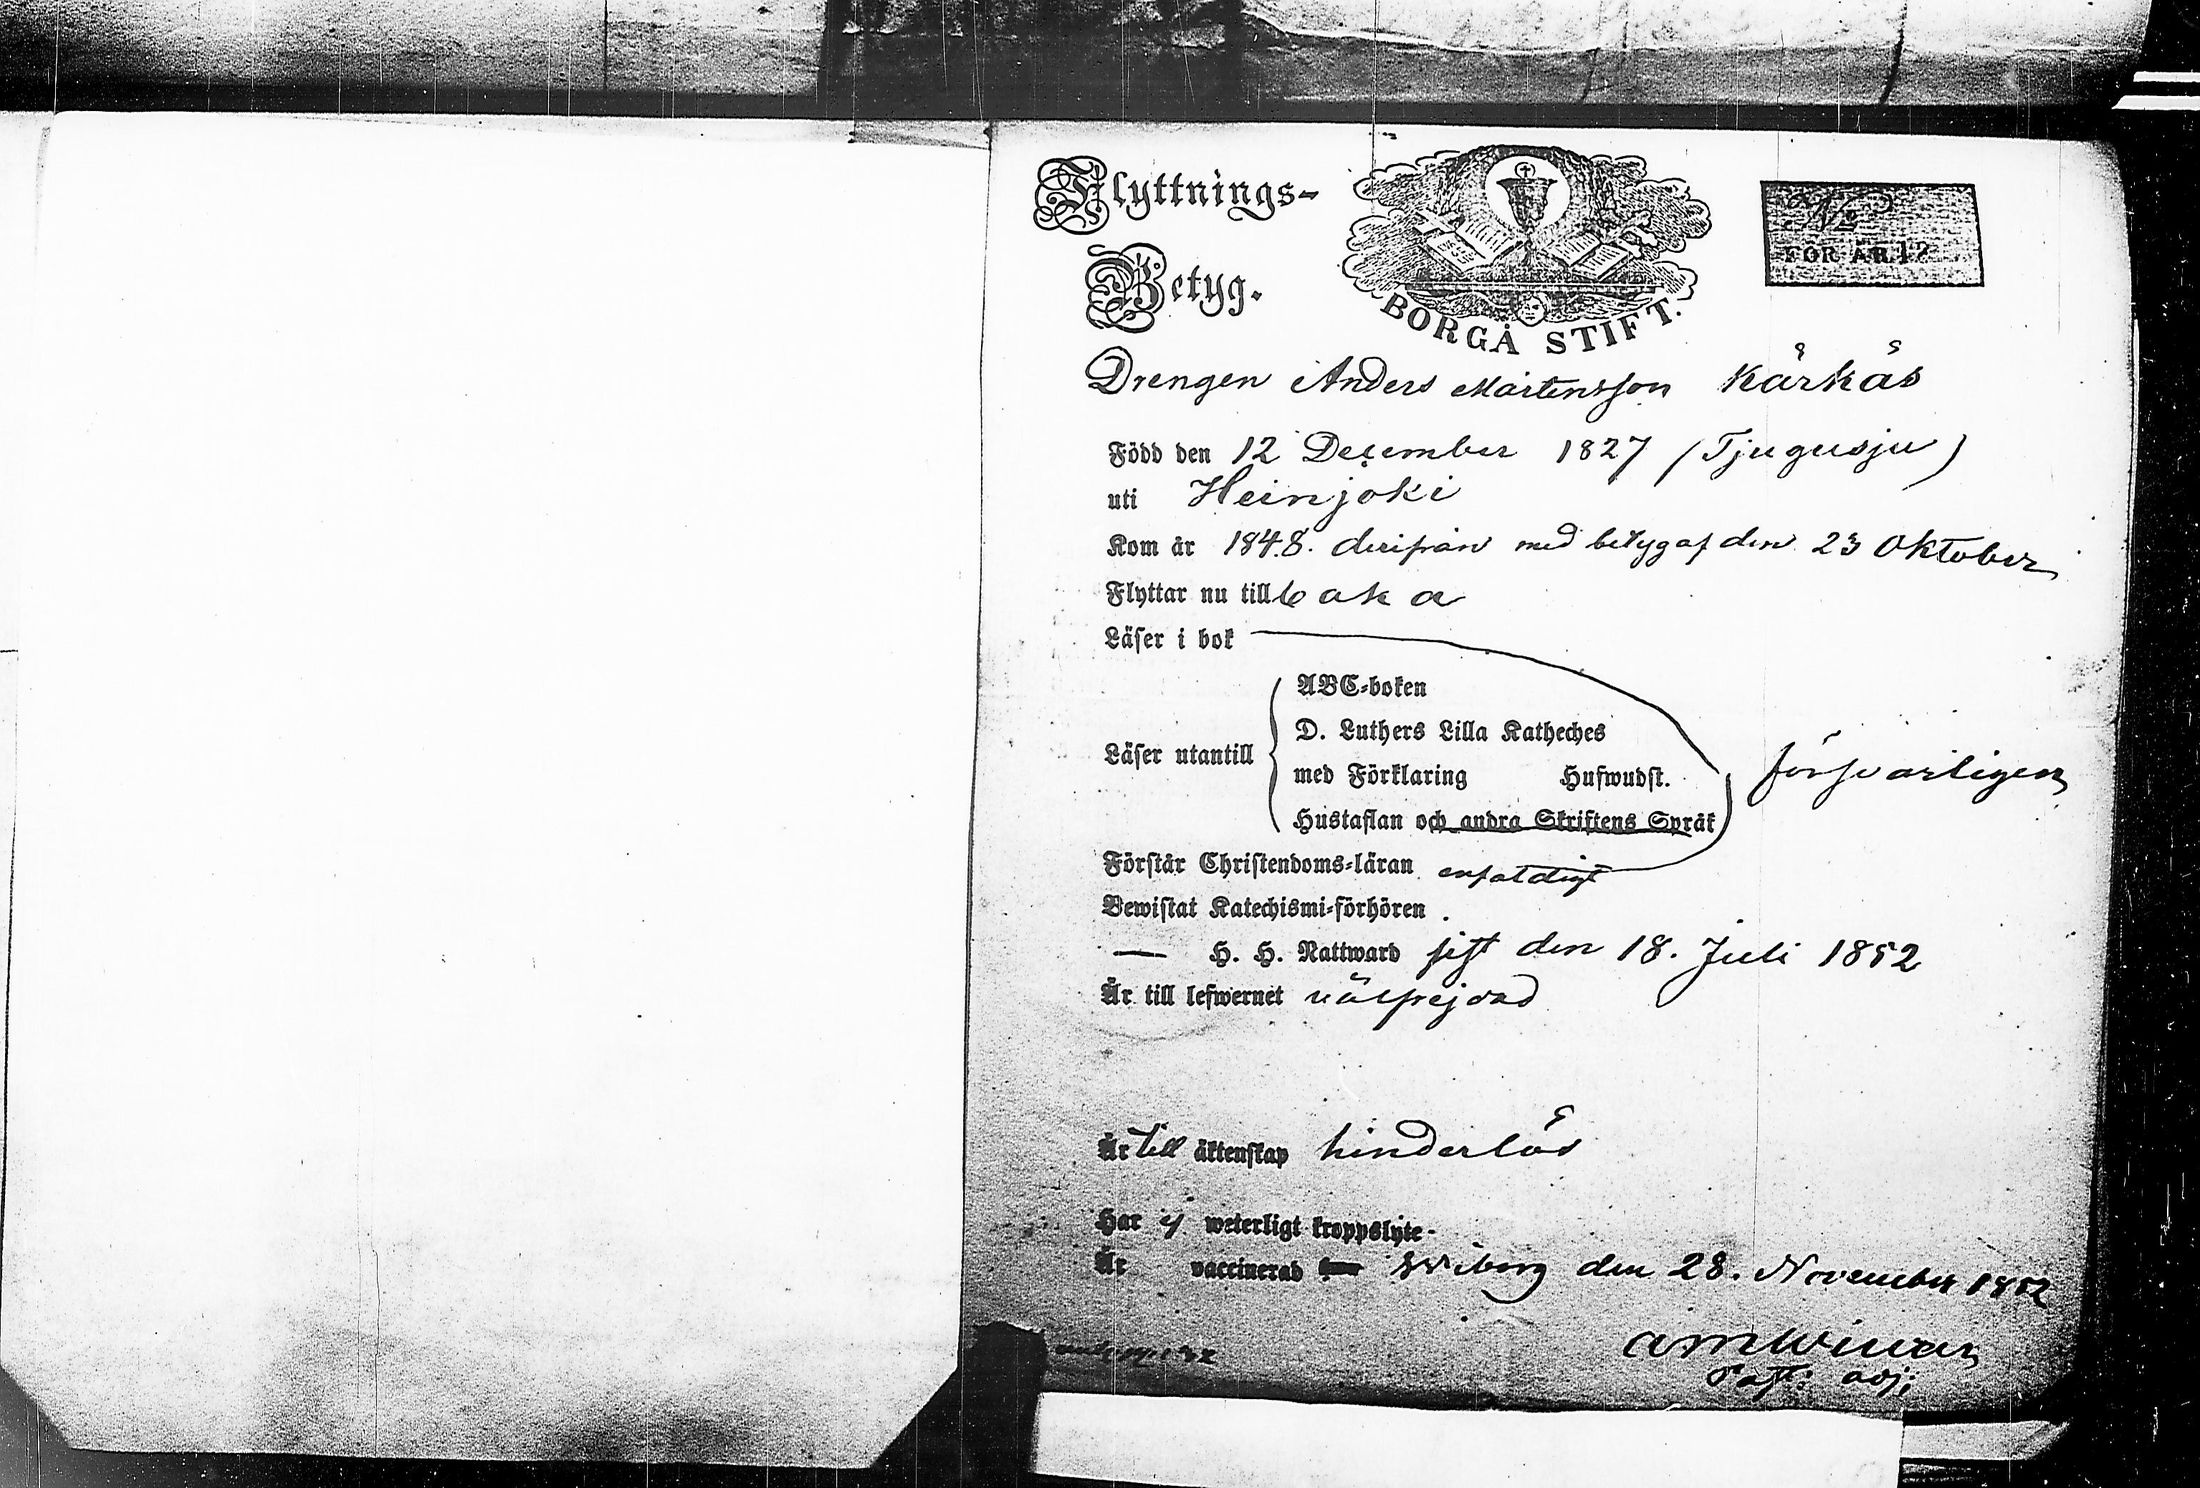 Flyttnings-
Betyg.
BORGÅ STIFT.
No
FÖR ÅR 18
Drengen Anders Mårtensson Kärkäs
Född den 12 December 1827 (Tjugusju)
uti Heinjoki
Kom år 1848. derifrån med betyg af den 23 Oktober
Flyttar nu till
Läser i bok
ABC-boken
D. Luthers Lilla Katheches
Läser utantill
med Förklaring Hufwudst.
försvarligen
Hustaflan och andra Skriftens Språk
Förstår Christendoms-läran enfaldigt
Bewistat Katechismi-förhören
— H. H. Nattward sist den 18. Juli 1852
Är till lefwernet välfrejdad
Är till äktenskap hinderlös
Har ej weterligt kroppslyte
Är vaccinerad Wiborg den 28. November 1852
Past: adj: